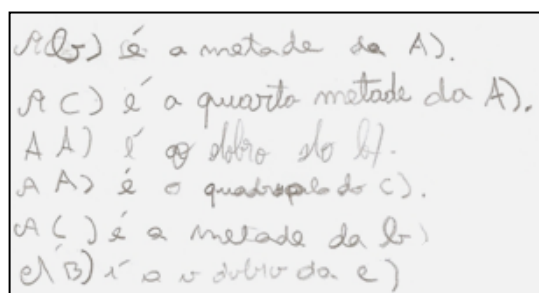 A b) é a metade da A).
A C) é a quarta metade da A).
A A) é o dobro do b).
A A) é o quadropelo do C).
A C) é a metade da b)
A B) é o dobro da c)